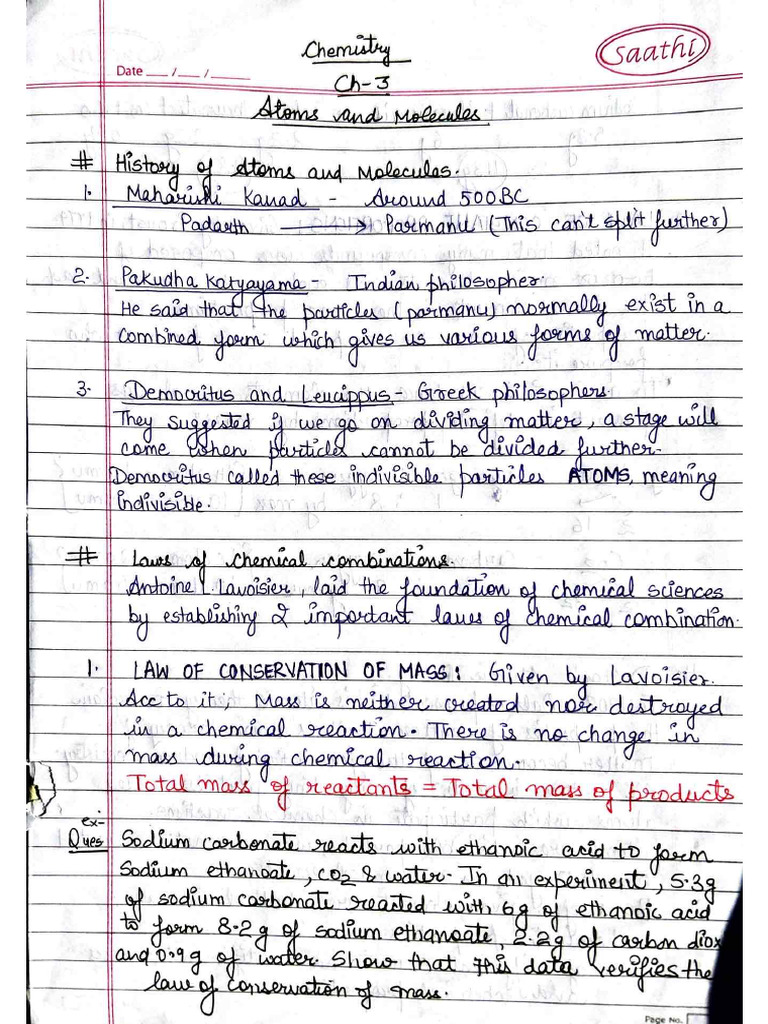 Chemistry
saathi
Date ___/___/_____
Ch-3
Atoms and Molecules.
# History of Atoms and Molecules.
1. Maharishi Kanad - Around 500BC
Padarth ⟶ Parmanu (This can't split further)
2. Pakudha Katyayama - Indian philosopher.
He said that the particles (parmanu) normally exist in a
combined form which gives us various forms of matter.
3. Democritus and Leucippus - Greek philosophers.
They suggested if we go on dividing matter, a stage will
come when particles cannot be divided further.
Democritus called these indivisible particles ATOMS, meaning
indivisible.
# Laws of chemical combinations.
Antoine L. Lavoisier, laid the foundation of chemical sciences
by establishing 2 important laws of chemical combination.
1. LAW OF CONSERVATION OF MASS: Given by Lavoisier.
Acc to it, Mass is neither created nor destroyed
in a chemical reaction. There is no change in
mass during chemical reaction.
Total mass of reactants = Total mass of products
ex-
Ques Sodium carbonate reacts with ethanoic acid to form
Sodium ethanoate, CO2 & water. In an experiment, 5.3g
of sodium carbonate reacted with 6g of ethanoic acid
to form 8.2g of sodium ethanoate, 2.2g of carbon diox
and 0.9g of water. Show that this data verifies the
law of conservation of mass.
Page No.